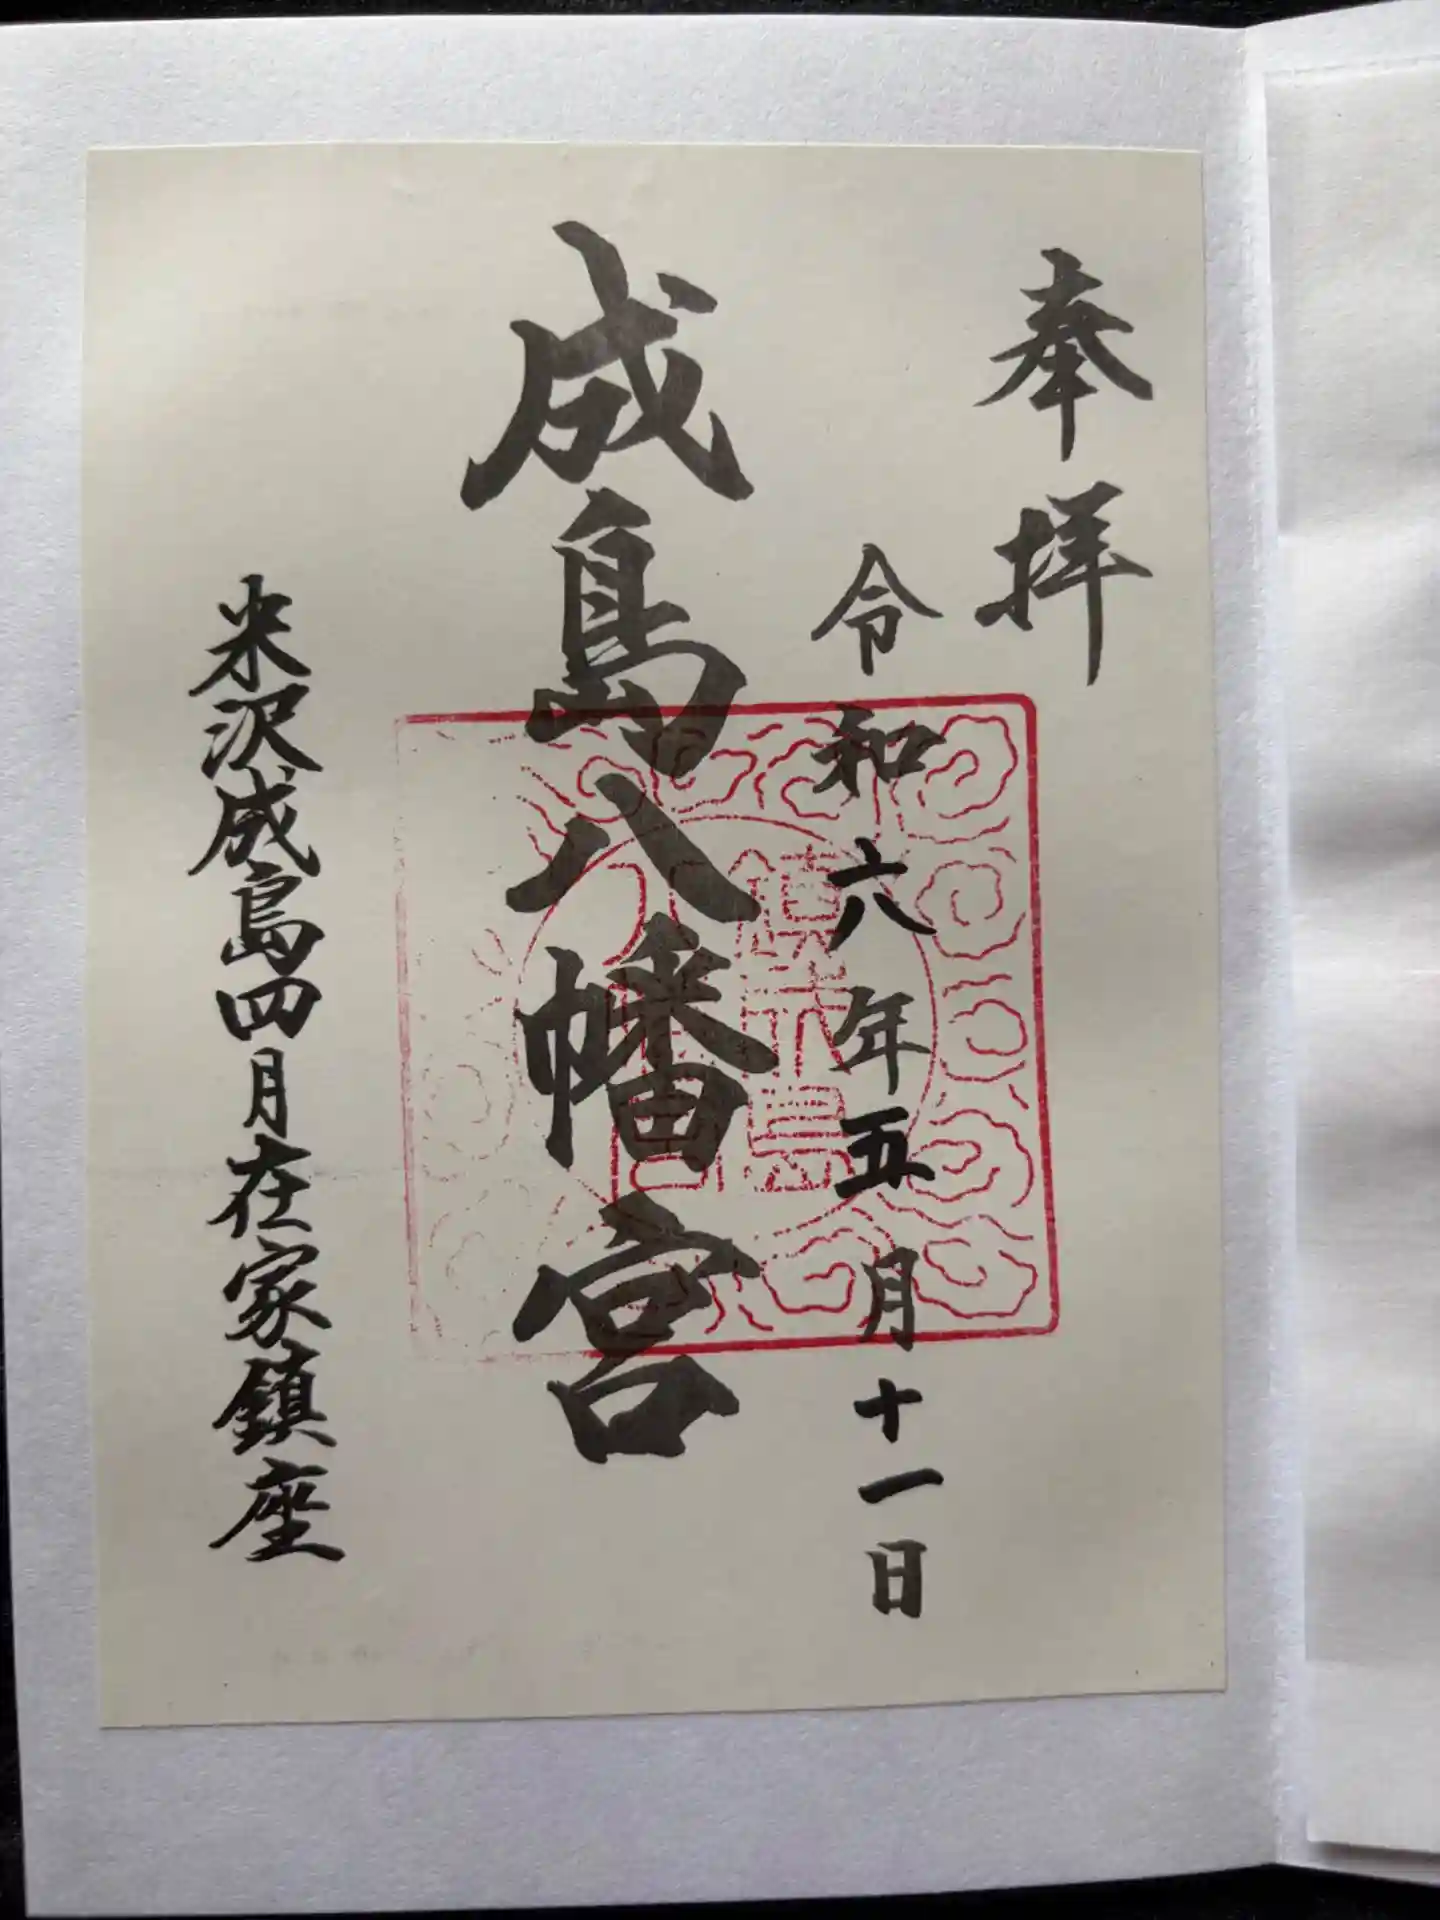 奉拝
令和六年五月十一日
成島八幡宮
米沢成島四月在家鎮座